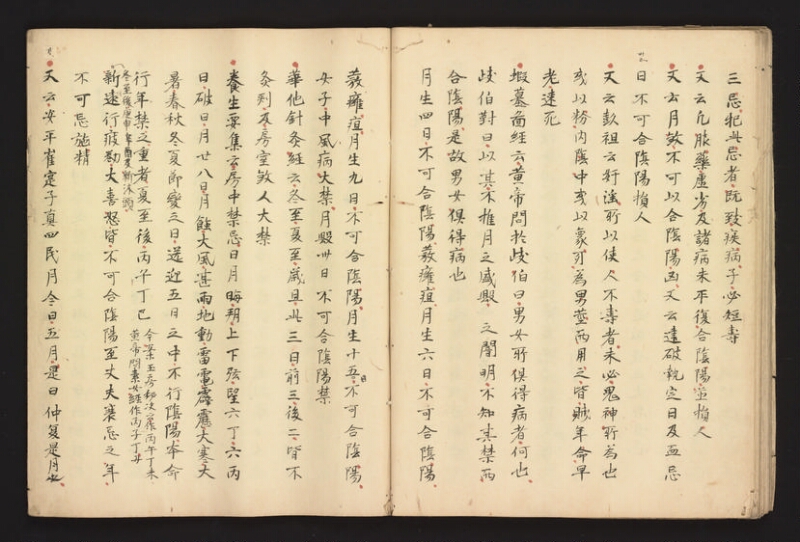 三忌犯此忌者既致疾病子必短壽
又云凡服藥虛劣及諸病未平復合陰陽並損人
又云月煞不可以合陰陽凶又云建破執定日及血忌
日不可合陰陽損人
又云彭祖云奸淫所以使人不壽者未必鬼神所為也
或以粉内陰中或以象牙為男莖而用之皆賊年命早
老速死
蝦蟇圖經云黃帝問於岐伯曰男女所俱得病者何也
岐伯對曰以其不推月之盛毀之闇明不知其禁而
合陰陽是故男女俱得病也
月生四日不可合陰陽發癰疽月生六日不可合陰陽
發癰疽月生九日不可合陰陽月生十五日不可合陰陽
女子中風病大禁月毀卅日不可合陰陽禁
華他針灸經云冬至夏至歲旦此三日前三後二皆不
灸刺及房室煞人大禁
養生要集云房中禁忌日月晦朔上下弦望六丁六丙
日破日月廿八日月蝕大風甚雨地動雷電霹靂大寒大
暑春秋冬夏節變之日送迎五日之中不行陰陽本命
行年禁之重者夏至後丙子丁巳
今案玉房秘决云丙午丁未
黃帝問素女經作丙子丁丑
冬至後庚申辛酉及新沐頭
新遠行疲勌大喜怒皆不可合陰陽至丈夫衰忌之年
不可忌施精
又云安平崔寔子真四民月令曰五月是日仲夏是月也